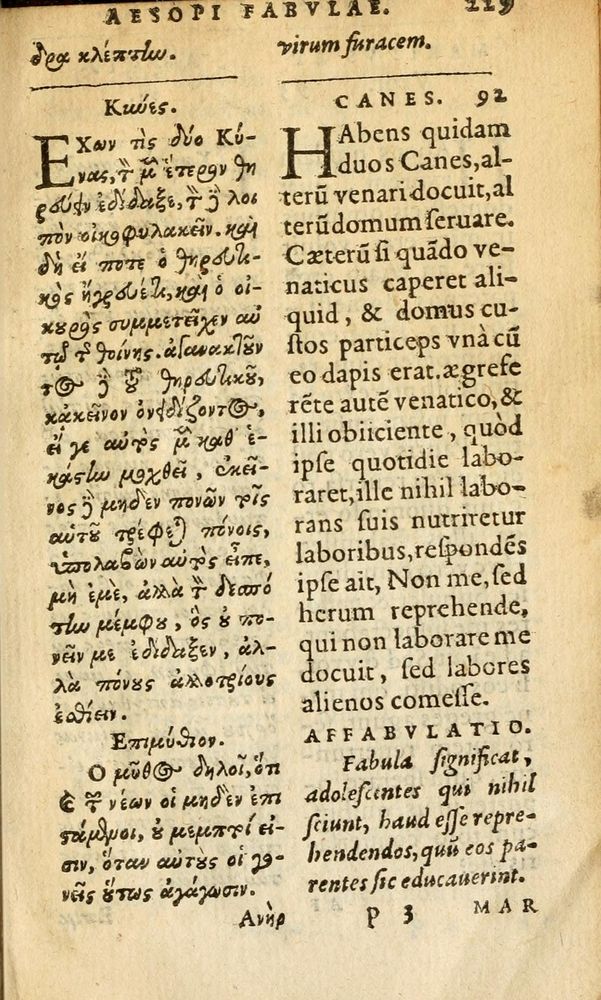 AESOPI FABVLAE. 229
δρα κλέπτην.
Κύνες.
ΕΧων τὶς δύο Κύ-
νας, τὸν μὲν ἕτερον θη
ρεύειν ἐδίδαξε, τὸν δὲ λοι
πὸν οἰκοφυλακεῖν. καὶ
δὴ εἴ ποτε ὁ θηρευτι-
κὸς ἤγρευέ τι, καὶ ὁ οἰ-
κουρὸς συμμετεῖχεν αὐ
τῷ τῆς θοίνης. ἀγανακτοῦν
τος δὲ τοῦ θηρευτικοῦ,
κἀκεῖνον ὀνειδίζοντος,
εἴ γε αὐτὸς μὲν καθ' ἑ-
κάστην μοχθεῖ, ἐκεῖ-
νος δὲ μηδὲν πονῶν τοῖς
αὐτοῦ τρέφεται πόνοις,
ὑπολαβὼν αὐτὸς εἶπε,
μὴ ἐμὲ, ἀλλὰ τὸν δεσπό
την μέμφου, ὃς οὐ πο-
νεῖν με ἐδίδαξεν, ἀλ-
λὰ πόνους ἀλλοτρίους
ἐσθίειν.
Επιμύθιον.
Ο μῦθος δηλοῖ, ὅτι
καὶ τῶν νέων οἱ μηδὲν ἐπι
στάμενοι, οὐ μεμπτοί εἰ-
σιν, ὅταν αὐτοὺς οἱ γο-
νεῖς οὕτως ἀγάγωσιν.
Ανὴρ
virum furacem.
CANES. 92
HAbens quidam
duos Canes, al-
terũ venari docuit, al
terũ domum seruare.
Cæterũ si quãdo ve-
naticus caperet ali-
quid, & domus cu-
stos particeps vnà cũ
eo dapis erat. ægrefe
rẽte autẽ venatico, &
illi obiiciente, quòd
ipse quotidie labo-
raret, ille nihil labo-
rans suis nutriretur
laboribus, respondẽs
ipse ait, Non me, sed
herum reprehende,
qui non laborare me
docuit, sed labores
alienos comesse.
AFFABVLATIO.
Fabula significat,
adolescentes qui nihil
sciunt, haud esse repre-
hendendos, quũ eos pa-
rentes sic educauerint.
P 3 MAR